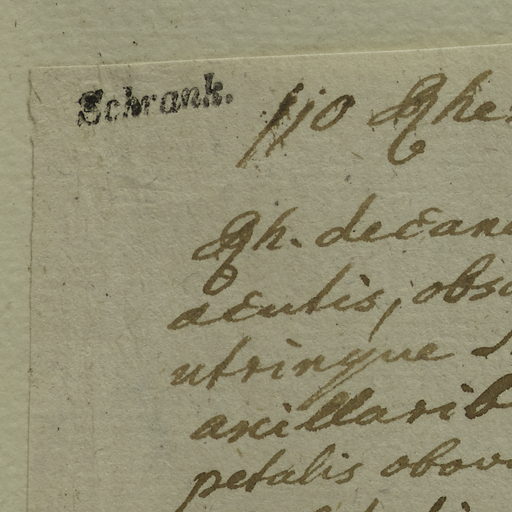 Schrank.
Rhe
Rh. decan
acutis, obs
utrinque
axillarib
petalis obov